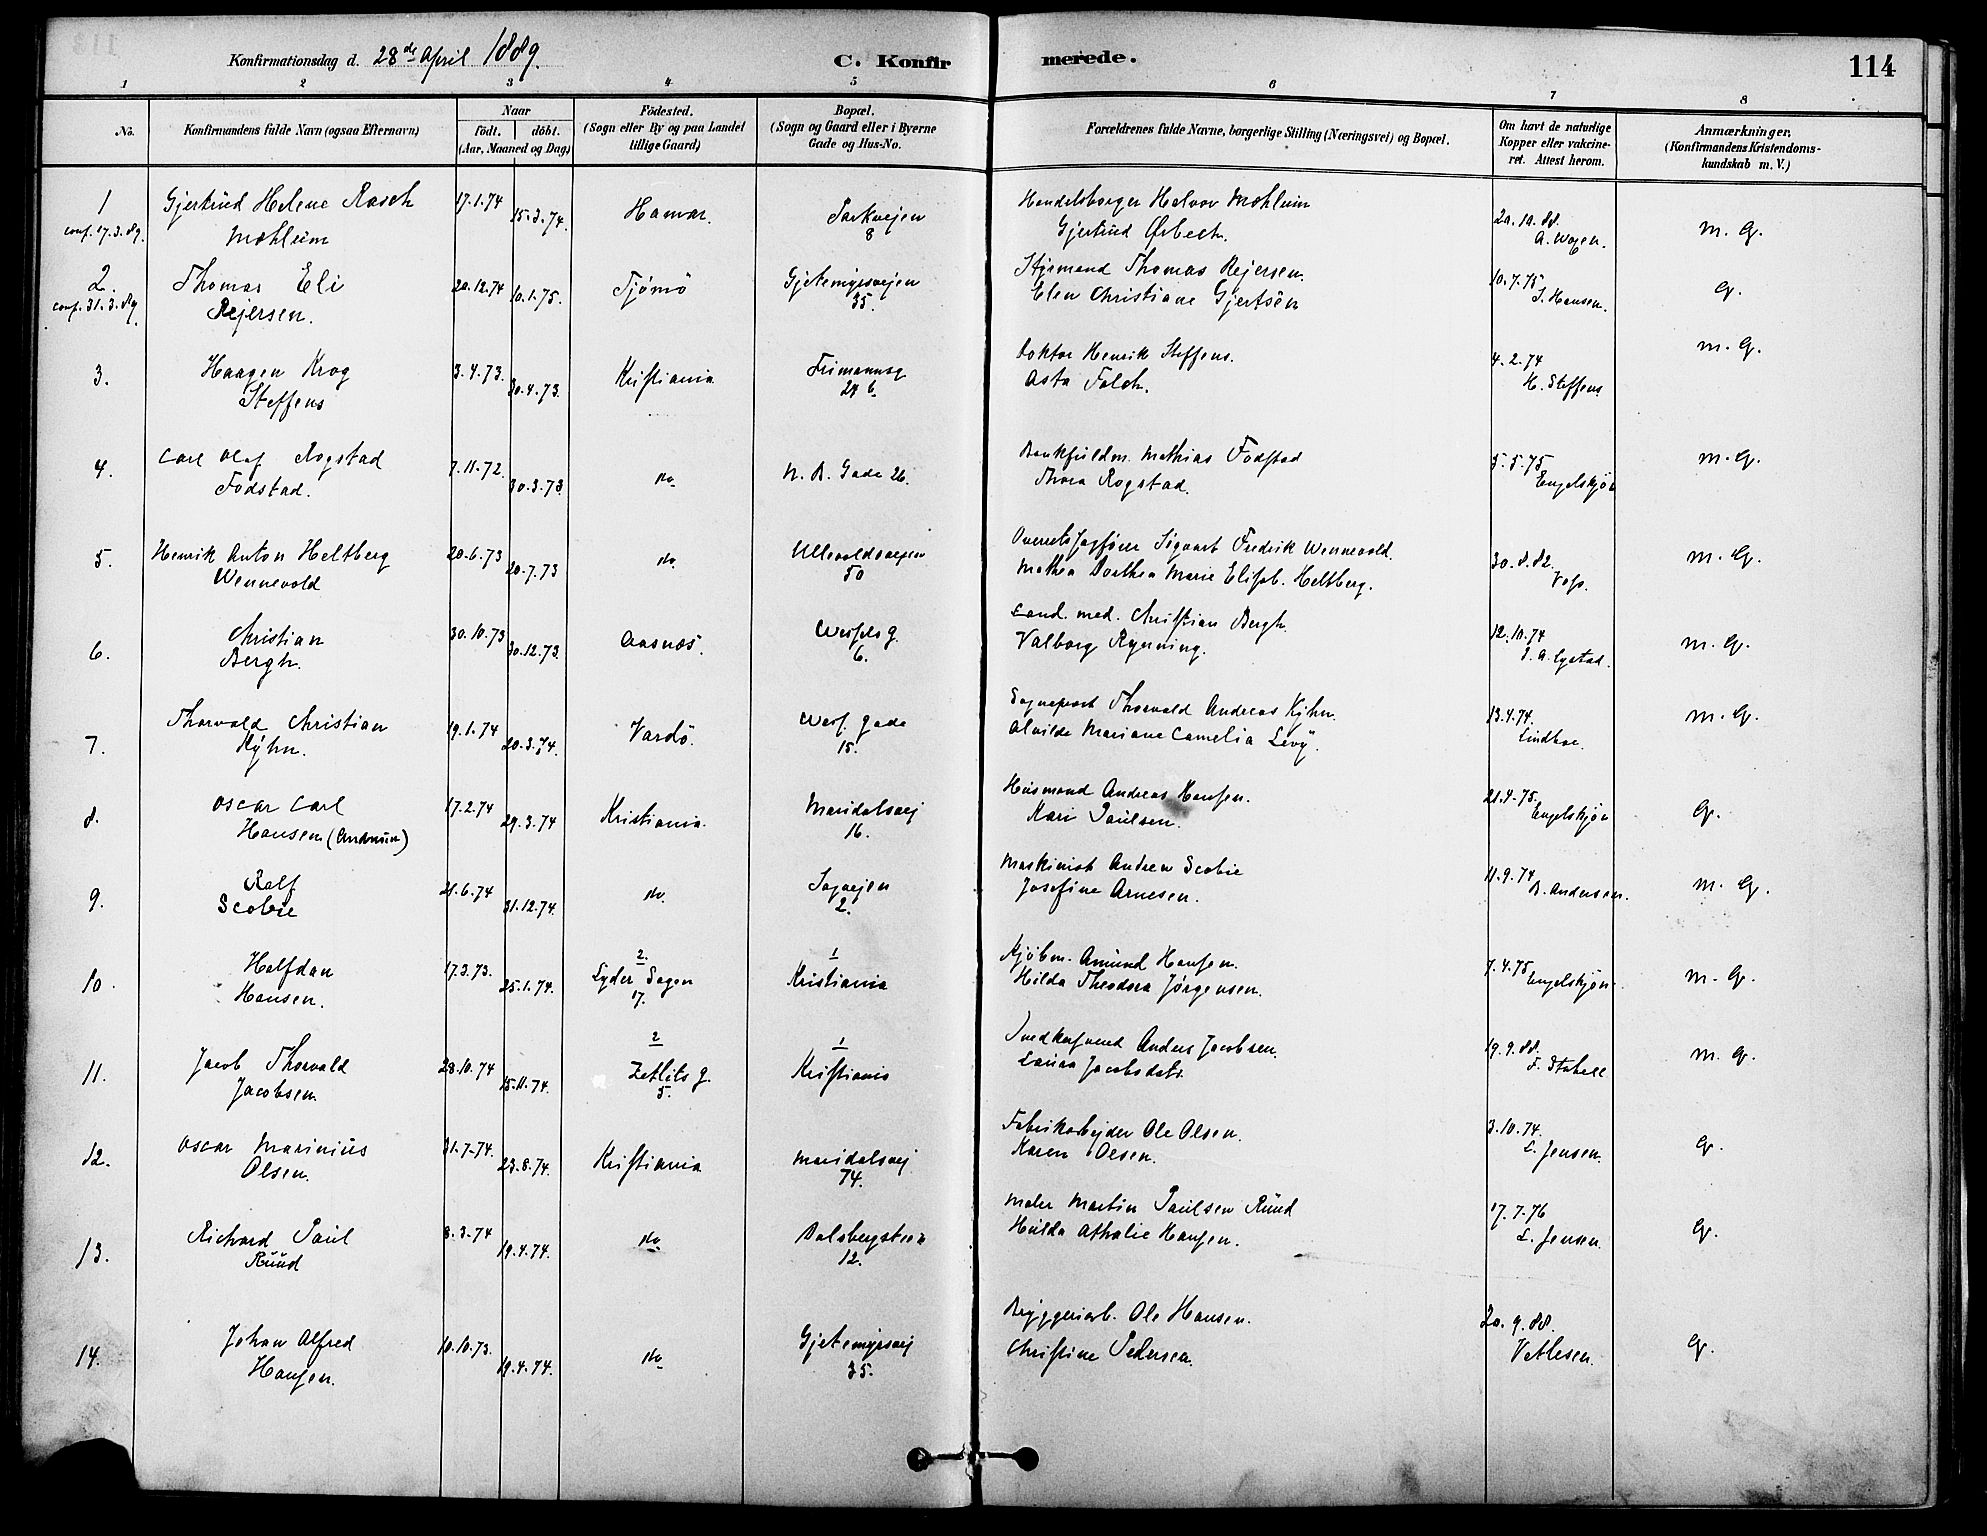 Konfirmationsdag d. 28de April 1889.
C. Konfirmerede.
114
1 2 3 4 5 6 7 8
No.
Konfirmandens fulde Navn (ogsaa Efternavn)
Naar
født. | döbt.
(Aar, Maaned og Dag)
Födested.
(Sogn eller By og paa Landet
tillige Gaard)
Bopæl.
(Sogn og Gaard eller i Byerne
Gade og Hus-No.
Forældrenes fulde Navne, borgerlige Stilling (Næringsvei) og Bopæl.
Om havt de naturlige
Kopper eller vakcine-
ret. Attest herom.
Anmærkninger.
(Konfirmandens Kristendoms-
kundskab m. V.)
1 Gjertrud Helene Rasch 17.1.74 15.3.74. Hamar. Parkvejen Handelsborger Halvor Mæhlum 20.10.88. M. G.
conf. 17.3.89. Mæhlum 8 Gjertrud Ørbech. A. Wogen.
2. Thomas Eli 20.12.74 10.1.75. Tjömö Gjetemyrsvejen Styrmand Thomas Rejersen. 10.7.75 G.
conf. 31.3.89. Rejersen. 35. Elen Christiane Gjertsen J. Hansen.
3. Haagen Krog 3.4.73. 30.4.73. Kristiania Frimannsg Doktor Henrik Steffens. 4.2.74 M. G.
Steffens 24 b. Asta Falch. H. Steffens
4. Carl Olaf Rogstad 7.11.72. 30.3.73. do N. B. Gade 26. Bankfuldm. Mathias Fodstad 5.5.75 M. G.
Fodstad. Thora Rogstad. Engelskjøn
5. Henrik Anton Heltberg 20.6.73 20.7.73 do. Ullevoldsvejen Overretssagfører Sigvart Fredrik Wennevold. 30.8.82. M. G.
Wennevold 50 Mathea Dorthea Marie Elisab. Heltberg. Voss.
6. Christian 30.10.73 30.12.73. Aasnæs. Wessels g. Cand. med. Christian Bergh. 12.10.74 M. G.
Bergh. 6. Valborg Ryerning.
7. Thorvald Christian 19.1.74 20.3.74. Vardö. Wess. gade Sogneprest Thorvald Andreas Kyhn. 13.4.74. M. G.
Kyhn. 15. Alvilde Mariane Camelia Levy. Lindboe.
8. Oscar Carl 17.2.74 29.3.74 Kristiania. Maridalsvej Husmand Andreas Hansen. 21.4.75. G.
Hansen 16. Kari Paulsen. Engelskjøn
9. Ralf 21.6.74 31.12.74. do. Sagvejen Maskinist Andrew Scobie 11.9.74 M. G.
Scobie 2. Josefine Arnesen. B. Andersen.
10. Halfdan 17.3.73. 25.1.74. 2. Lyder Sagen 1 Kristiania Kjöbm. Amund Hansen. 7.4.75 M. G.
Hansen. 17. Hilda Theodora Jørgensen. Engelskjøn
11. Jacob Thorvald 28.10.74 15.11.74. 2 Zetlits g. 1 Kristiania Anders Jacobsen. 19.9.88. M. G.
Jacobsen. 5. Laura Jacobsdatr. F. Stabell
12. Oscar Marinius 31.7.74. 23.8.74. Kristiania Maridalsvej Fabrikarbejder Ole Olsen. 3.10.74. G.
Olsen. 74. Karen Olsen. L. Jensen.
13. Richard Paul 8.3.74 19.4.74. do Dalsbergsteen Maler Martin Paulsen Ruud 17.7.76 G.
Ruud 12. Hulda Athalie Hansen. L. Jensen.
14. Johan Alfred 10.10.73. 19.4.74. do Gjetemyrsvej Bryggeriarb. Ole Hansen. 20.9.88. G.
Hansen. 35. Christine Pedersen. Vetlesen.